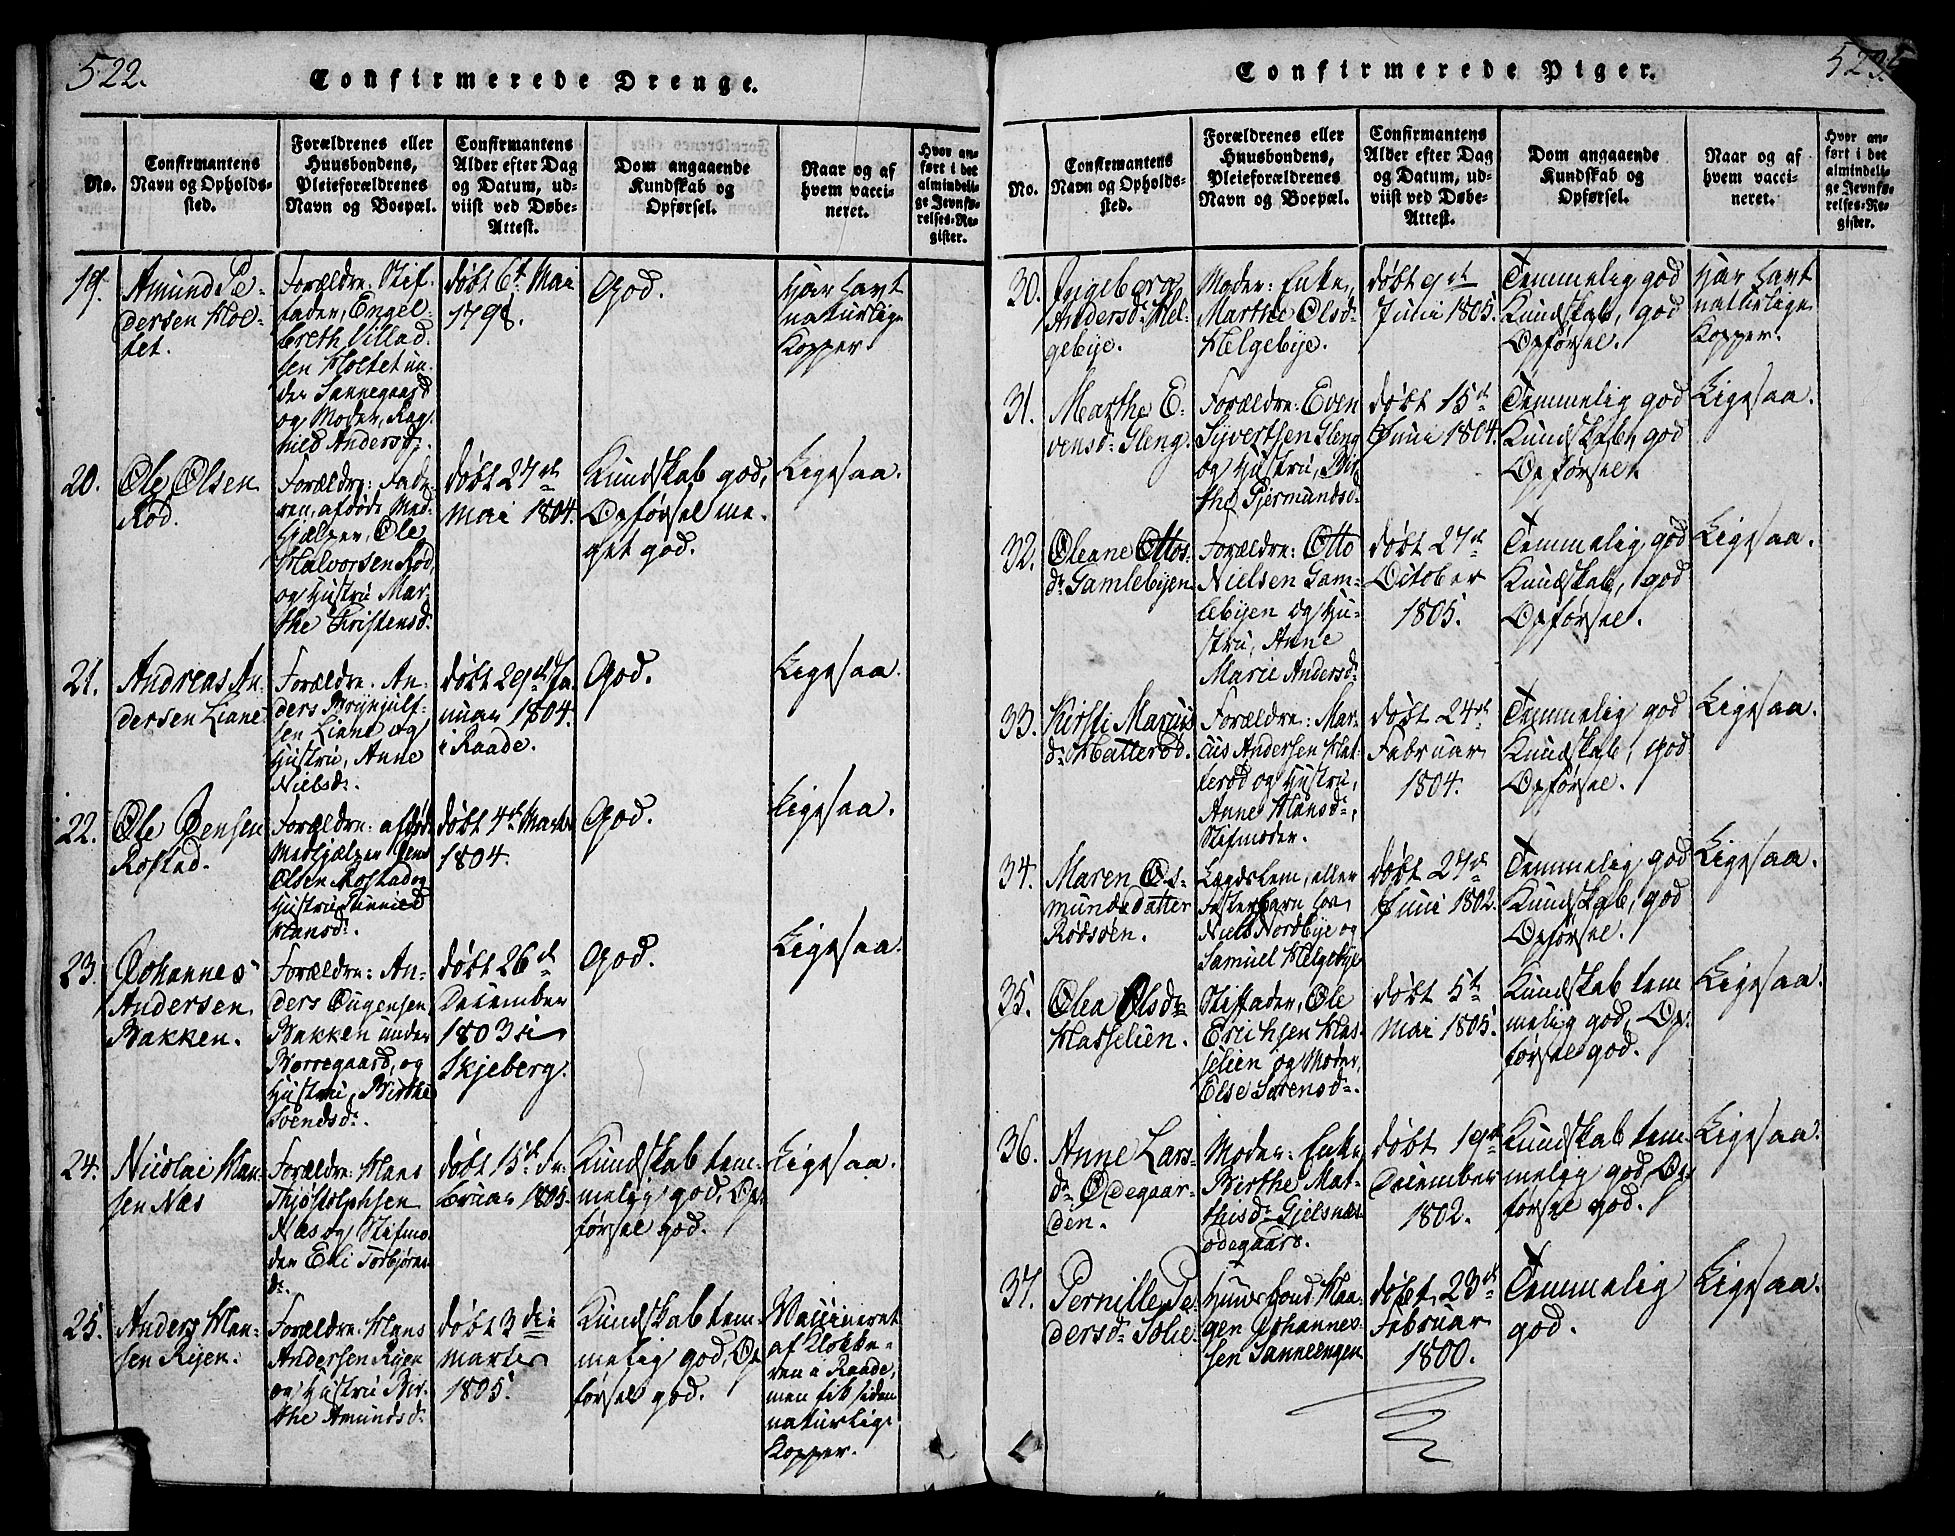 522.
Confirmerede Drenge.
No.
Confirmantens
Navn og Opholds-
sted.
Forældrenes eller
Huusbondens,
Pleieforældrenes
Navn og Boepæl.
Confirmantens
Alder efter Dag
og Datum, ud-
viist ved Døbe-
Attest.
Dom angaaende
Kundskab og
Opførsel.
Naar og af
hvem vacci-
neret.
Hvor an-
ført i det
almindeli-
ge Jevnfø-
relses-Re-
gister.
19.
Amund Pe-
dersen Hol-
tet.
Forældre: Stif-
fader, Engel-
breth Villad-
sen Holtet un-
der Sannegaard
og Moder, Rag-
nild Andersd:
døbt 6t Mai
1798.
God.
Har havt
naturlige
Kopper.
20.
Ole Olsen
Rød.
Forældre: Fade-
ren, afdøde Med-
hjælper, Ole
Halvorsen Rød,
og Hustru Mar-
the Christensd:
døbt 27de
Mai 1804.
Kundskab god,
Opførsel me-
get god.
Ligesaa.
21.
Andreas An-
dersen Liane.
Forældre: An-
ders Brynjulf-
sen Liane og
Hustru, Anne
Nielsd:
døbt 29de Ja-
nuar 1804.
i Raade.
God.
Ligesaa.
22.
Ole Jensen
Rostad.
Forældre: afdøde
Medhjælper Jens
Olsen Rostad og
Hustru Gunnild
Hansd:
døbt 4de Marts
1804.
God.
Ligesaa.
23.
Johannes
Andersen
Bakken.
Forældre: An-
ders Eugensen
Bakken under
Borregaard, og
Hustru, Birthe
Svendsd:
døbt 26de
December
1803 i
Skjeberg.
God.
Ligesaa.
24.
Nicolai Han-
sen Næs
Forældre: Hans
Thjøstolphsen
Næs og Stifmo-
der Eli Torbjørns-
d:
døbt 15de Fe-
bruar 1805.
Kundskab tem-
melig god, Op-
førsel god.
Ligesaa.
25.
Anders Han-
sen Ryen.
Forældre: Hans
Andersen Ryen
og Hustru Bir-
the Amundsd:
døbt 3die
Marts
1805.
Kundskab tem-
melig god, Op-
førsel god.
Vaccineret
af Klokke-
ren i Raade,
men fik siden
naturlige
Kopper.
523.
Confirmerede Piger.
No.
Confirmantens
Navn og Opholds-
sted.
Forældrenes eller
Huusbondens,
Pleieforældrenes
Navn og Boepæl.
Confirmantens
Alder efter Dag
og Datum, ud-
viist ved Døbe-
Attest.
Dom angaaende
Kundskab og
Opførsel.
Naar og af
hvem vacci-
neret.
Hvor an-
ført i det
almindeli-
ge Jevnfø-
relses-Re-
gister.
30.
Ingeborg
Andersd: Hel-
gebye.
Moder: Enke,
Marthe Olsd:
Helgebye.
døbt 9de
Juni 1805.
Temmelig god
Kundskab, god
Opførsel.
Har havt
naturlige
Kopper.
31.
Marthe E-
vensd: Gleng.
Forældre: Even
Syvertsen Gleng
og Hustru, Bir-
the Gjermundsd:
døbt 15de
Juni 1804.
Temmelig god
Kundskab, god
Opførsel.
Ligesaa.
32.
Oleane Ottos-
dr Gamlebyen.
Forældre: Otto
Nielsen Gam-
lebyen og Hu-
stru, Anne
Marie Andersd:
døbt 27de
October
1805.
Temmelig god
Kundskab, god
Opførsel.
Ligesaa.
33.
Kirsti Marcus-
dr Hatterød.
Forældre: Mar-
cus Andersen Hat-
terød og Hustru,
Anne Hansd:,
Stifmoder.
døbt 24de
Februar
1804.
Temmelig god
Kundskab, god
Opførsel.
Ligesaa.
34.
Maren Os-
mundsdatter
Rødsøen.
Lægdslem, eller
Fosterbarn hos
Niels Nordbye og
Samuel Helgebye
døbt 27de
Juni 1802.
Temmelig god
Kundskab, god
Opførsel.
Ligesaa.
35.
Olea Olsdr
Hasselien.
Stiffader, Ole
Erichsen Has-
selien og Moder,
Else Sørensd:.
døbt 5te
Mai 1805.
Kundskab tem-
melig god, Op-
førsel god.
Ligesaa.
36.
Anne Lars-
dr Ødegaar-
den.
Moder: Enke,
Birthe Mat-
thisd: Gjelsnæs-
ødegaard.
døbt 19de
December
1802.
Kundskab tem-
melig god, Op-
førsel god.
Ligesaa.
37.
Pernille Pe-
dersd: Solie.
Huusbond Haa-
gen Johannes-
sen Sanneengen
døbt 23de
Februar
1800.
Temmelig
god.
Ligesaa.